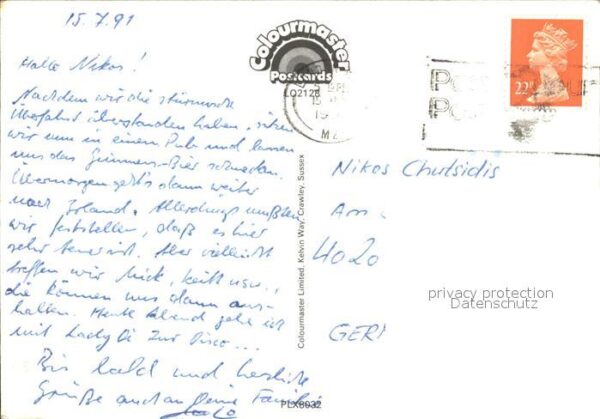 15.7.91
Hallo Nikos!
Nachdem wir die stürmische
Überfahrt überstanden haben, sitzen
wir nun in einem Pub und lassen
uns das Guinness-Bier schmecken.
Übermorgen geht's dann weiter
nach Irland. Allerdings mußten
wir feststellen, daß es hier
sehr teuer ist. Aber vielleicht
treffen wir Mick, Keith usw.,
die können uns dann aus-
halten. Heute Abend gehe ich
mit Lady Di zur Disco...
Bis bald und herzliche
Grüße auch an Deine Familie
Colourmaster
Postcards
LO2128
Colourmaster Limited, Kelvin Way, Crawley, Sussex
PLX8932
22P
Nikos Chutsidis
Am
4020
GER
privacy protection
Datenschutz